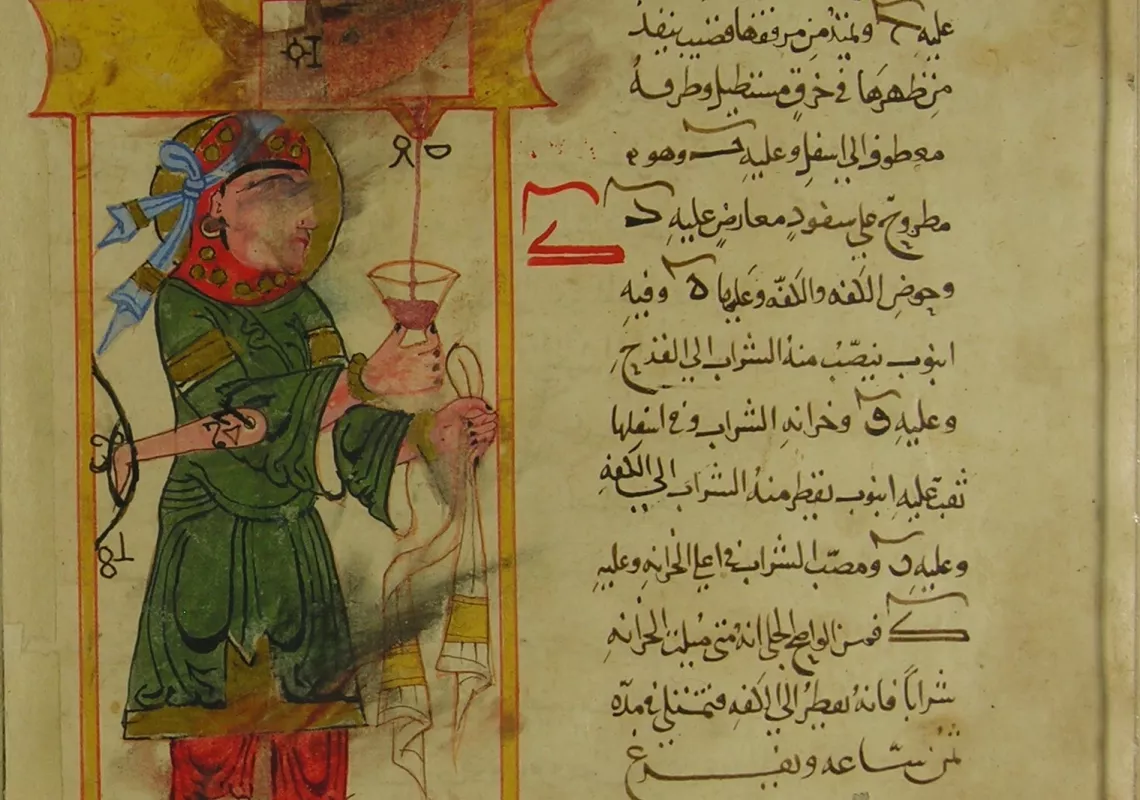 عليه ح ويمتد من مرفقها قضيب ينفذ
من ظهرها في خرق مستطيل وطرفه
معطوف الى اسفل وعليه وهو
مطروح على سفود معارض عليه د
وحوض الكفه والكفه وعليها ه وفيه
انبوب ينصب منه الشراب الى القدح
وعليه و وخزانه الشراب وفي اسفلها
ثقب عليه انبوب يقطر منه الشراب الى الكفه
وعليه ومصب الشراب في اعلى الخزانه وعليه
ك فمن الواضح الجلي انه متى ملئت الخزانه
شراباً فانه يقطر الى الكفه فتمتلئ في مده
ثمن ساعه ويفرغ